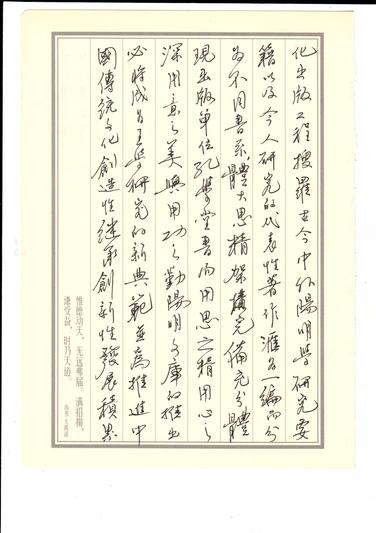 化出版工程搜羅古今中外陽明學研究要
籍以及今人研究的代表性著作滙為一編而分
為不同書系體大思精架構完備充分體
現出版單位孔學堂書局用思之精用心之
深用意之美與用功之勤陽明文庫的推出
必將成為王學研究的新典範並為推進中
國傳統文化創造性繼承創新性發展積累
惟德动天，无远弗届。满招损，
谦受益，时乃天道。
尚书·大禹谟